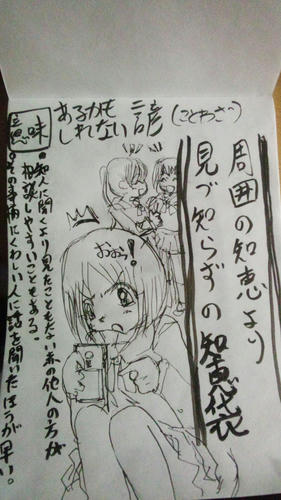 あるかも
しれない諺
(ことわざ)
周囲の知恵より
見ず知らずの知恵袋
おおっ!
意味
。知人に聞くより見たこともない赤の他人の方が
相談しやすいこともある。
。その事情にくわしい人に話を聞いたほうが早い。